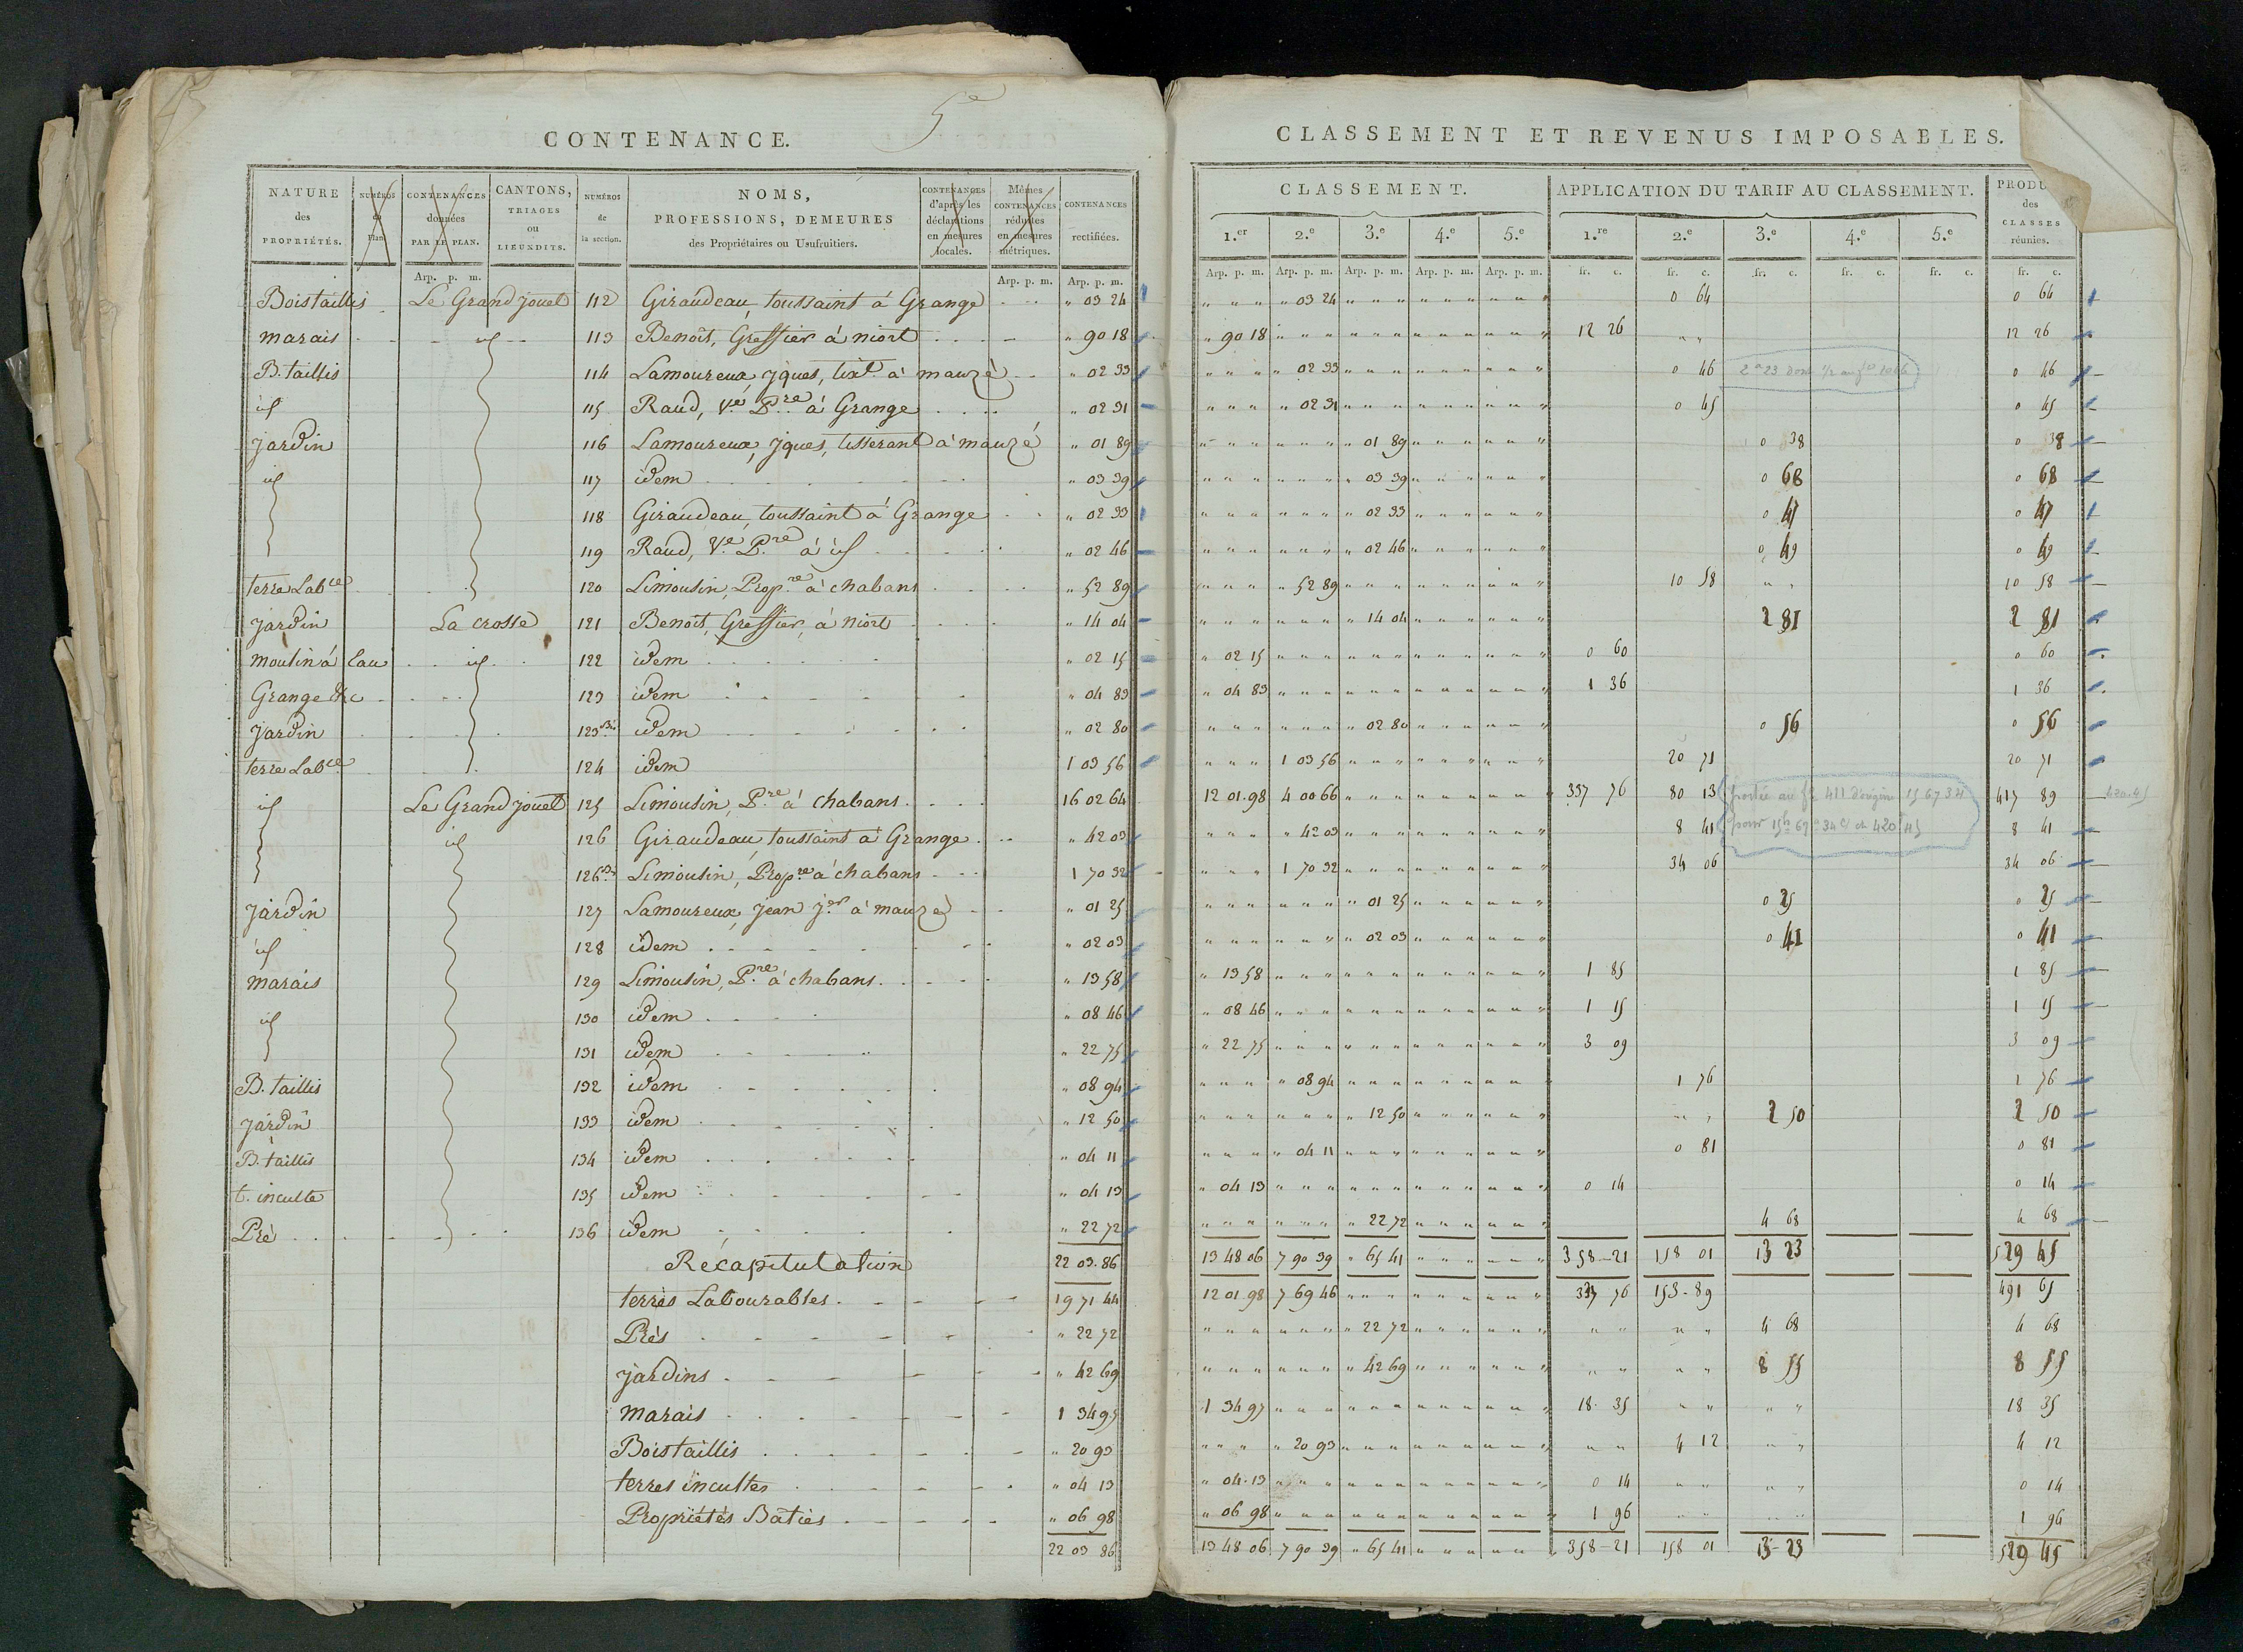 5e
CONTENANCE.
NATURE des PROPRIÉTÉS.
NUMÉROS du Plan.
CONTENANCES données PAR LE PLAN.
CANTONS, TRIAGES ou LIEUXDITS.
NUMÉROS de la section.
NOMS, PROFESSIONS, DEMEURES des Propriétaires ou Usufruitiers.
CONTENANCES d'après les déclarations en mesures locales.
Mêmes CONTENANCES réduites en mesures métriques.
CONTENANCES rectifiées.
Arp. p. m. Arp. p. m. Arp. p. m.
Boistaillis Le Grand jouet 112 Giraudeau, toussaint à Grange " 03 24
marais id 113 Benoît, Greffier à niort " 90 18
B. taillis 114 Lamoureux, jques, tixt. à mauzé " 02 33
id 115 Raud, Ve. Pre. à Grange " 02 31
jardin 116 Lamoureux, jques, tisserant à mauzé " 01 89
id 117 idem " 03 39
118 Giraudeau, toussaint à Grange " 02 33
119 Raud, Ve. Pre. à id " 02 46
terre Labce 120 Limousin, Propre. à chabans " 52 89
jardin La crosse 121 Benoît, Greffier, à niort " 14 04
moulin à eau id 122 idem " 02 15
Grange &c 123 idem " 04 83
jardin 123 Bis idem " 02 80
terre Labce 124 idem 1 03 56
id Le Grand jouet 125 Limousin, Pre. à chabans 16 02 64
id 126 Giraudeau, toussaint à Grange " 42 03
126 Bis Limousin, Propre. à chabans 1 70 32
jardin 127 Lamoureux, jean jer. à mauzé " 01 25
id 128 idem " 02 03
marais 129 Limousin, Pre. à chabans " 13 58
id 130 idem " 08 46
131 idem " 22 75
B. taillis 132 idem " 08 94
jardin 133 idem " 12 50
B. taillis 134 idem " 04 11
t. inculte 135 idem " 04 13
Pré 136 idem " 22 72
Récapitulation 22 03 86
terres Labourables 19 71 44
Prés " 22 72
jardins " 42 69
marais 1 34 97
Boistaillis " 20 93
terres incultes " 04 13
Propriétés Baties " 06 98
22 03 86
CLASSEMENT ET REVENUS IMPOSABLES.
CLASSEMENT. APPLICATION DU TARIF AU CLASSEMENT. PRODU
des CLASSES réunies.
1.er 2.e 3.e 4.e 5.e 1.re 2.e 3.e 4.e 5.e
Arp. p. m. Arp. p. m. Arp. p. m. Arp. p. m. Arp. p. m. fr. c. fr. c. fr. c. fr. c. fr. c. fr. c.
" 03 24 0 64 0 64
" 90 18 12 26 12 26
" 02 33 0 46 0 46
" 02 31 0 45 0 45
" 01 89 0 38 0 38
" 03 39 0 68 0 68
" 02 33 0 47 0 47
" 02 46 0 49 0 49
" 52 89 10 58 10 58
" 14 04 2 81 2 81
" 02 15 0 60 0 60
" 04 83 1 36 1 36
" 02 80 0 56 0 56
1 03 56 20 71 20 71
12 01 98 4 00 66 337 76 80 13 portée au fo 411 417 89 420.45
" 42 03 8 41 8 41
1 70 32 34 06 34 06
" 01 25 0 25 0 25
" 02 03 0 41 0 41
" 13 58 1 85 1 85
" 08 46 1 15 1 15
" 22 75 3 09 3 09
" 08 94 1 76 1 76
" 12 50 2 50 2 50
" 04 11 0 81 0 81
" 04 13 0 14 0 14
" 22 72 4 68 4 68
13 48 06 7 90 39 " 65 41 358 21 158 01 13 23 529 45
12 01 98 7 69 46 337 76 153 89 491 65
" 22 72 4 68 4 68
" 42 69 8 55 8 55
1 34 97 18 35 18 35
" 20 93 4 12 4 12
" 04 13 0 14 0 14
" 06 98 1 96 1 96
13 48 06 7 90 39 " 65 41 358 21 158 01 13 23 529 45